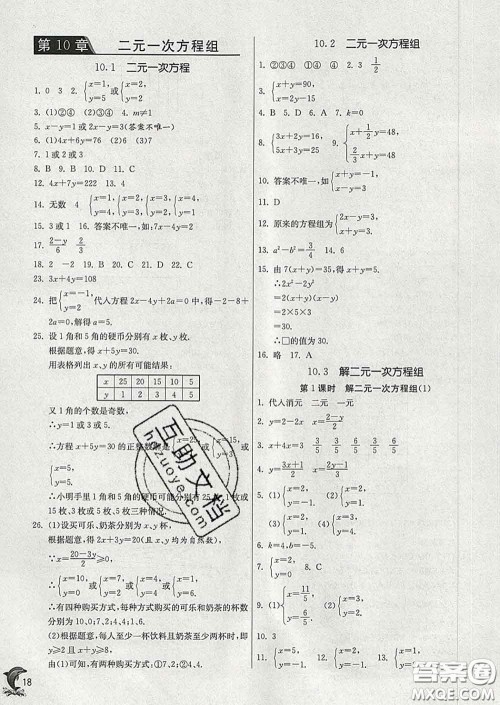 第10章 二元一次方程组
10.1 二元一次方程
1. 0 3 2. {x=1, y=5 或{x=2, y=0
3. (1)②④ (2)③④ 4. m≠1
5. x-y=1或2x-y=3(答案不唯一)
6. (1)4x+6y=76 (2)6 (3)8
7. 1或2或3
8. B 9. C 10. C 11. B
12. 4x+7y=222 13. 4
14. 无数 4 {x=1, y=4 {x=2, y=3 {x=3, y=2 {x=4, y=1
15. 3或1 16. 答案不唯一,如:7x-4y=2
17.
18. 2 -2 19. C 20. C 21. D 22. D
23. 3x+4y=108
24. 把{x=-1, y=2 代入方程2x-4y+2a=0,得-2-8+
2a=0,解得a=5.
25. 设1角和5角的硬币分别有x枚、y枚.
根据题意,得x+5y=30.
用表格列出x、y的所有可能结果:
x 25 20 15 10 5
y 1 2 3 4 5
又1角的个数是奇数,
∴方程x+5y=30的正整数解是 {x=15, y=3
{x=5, y=5.
∴小明手里1角和5角的硬币分别有25
15枚、3枚或5枚、5枚.
26. (1)设买可乐、奶茶分别为x、y杯.
根据题意,得2x+3y=20(且x、y均为自然数),
∴x=(20-3y)/2≥0
∴{x=10, y=0 或{x=7, y=2 或{x=4, y=4 或{x=1, y=6.
∴有四种购买方式,每种方式的可乐和奶茶的杯数
分别为10,0;7,2;4,4;1,6.
(2)根据题意,每人至少一杯饮料且奶茶至少二杯时,
即y≥2且x+y≥8,
由(1)可知,有二种购买方式:①7,2;②4,4.
18
10.2 二元一次方程组
1. ①②③④ ①④ ④ 2. 4
3. {x+y=90, x=2y-15
4. B 5. D 6. A 7. k=0
8. {3x+2y=16, 5x+3y=25
9. {x+1/2y=48, 2/3x+y=48
10. 答案不唯一,如:{x+y=-1, x-y=3
11. D
12. 原来的方程组为{2x-y=3, x+y=3.
13. a²-b²=3/4 14. 6
15. 由7(x+y)=35,得x+y=5.
∴2x²-2y²
=2(x+y)(x-y)
=2×5×3
=30.
∴□的值为30.
16. 略 17. A
10.3 解二元一次方程组
第1课时 解二元一次方程组(1)
1. 代入消元 消元 一元
2. y=2-2x x=(2-y)/2
3. x+4x=3 3/5 3/5 {x=3/5, y=6/5
4. y=(3x+1)/2 x=(2y-1)/3
5. (1){x=2, y=-1. (2){x=5, y=2.
6. k=4,b=2 7. {x=1, y=-1 8. D
9. (1){x=2, y=-1. (2){x=5, y=2.
10. 3
11. {x=1, y=-1 12. 1 13. {x=1, y=-4 14. C
互助文档
hzuzuoye.com
答案圈
MXQE.COM